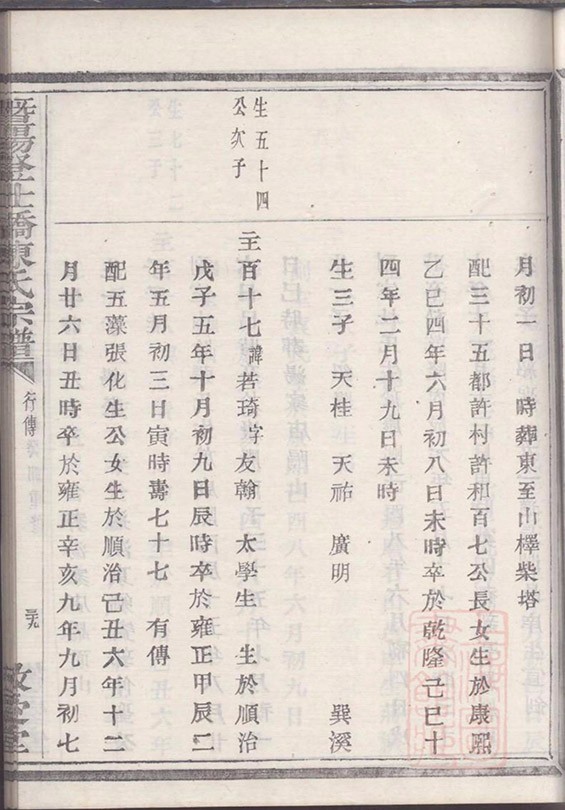 月初一日　時葬東至山檡柴塔
配三十五都許村許和百七公長女生於康熙
乙巳四年六月初八日未時卒於乾隆己巳十
四年二月十九日未時
生三子　天桂　天祐　廣明　巽溪
生五十四
公次子
主百十七諱若琦字友翰　太學生　生於順治
戊子五年十月初九日辰時卒於雍正甲辰二
年五月初三日寅時壽七十七　有傳
配五藻張化生公女生於順治己丑六年十二
月廿六日丑時卒於雍正辛亥九年九月初七
暨陽登仕橋陳氏宗譜
行傳